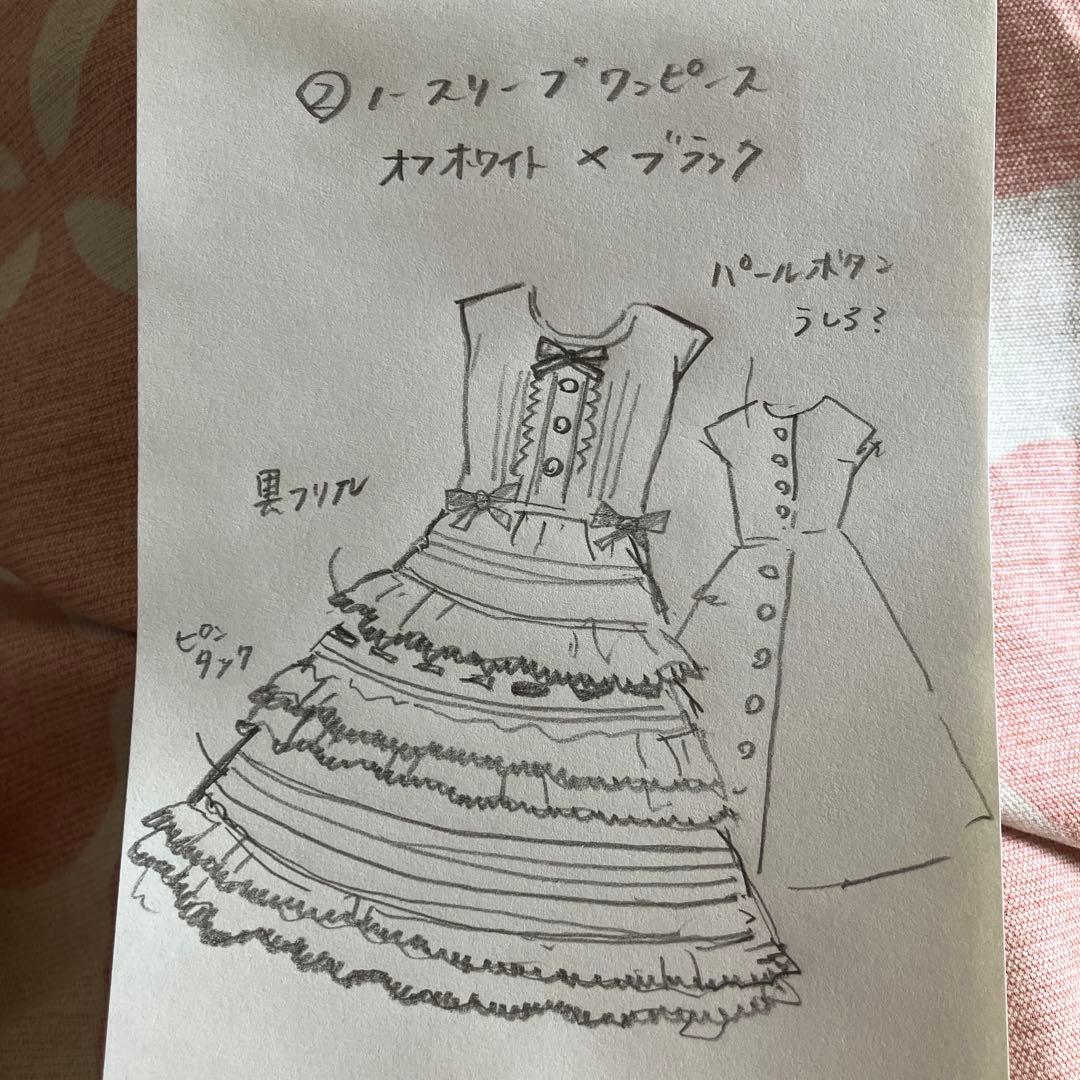 ② ノースリーブワンピース
オフホワイト × ブラック
パールボタン
うしろ?
黒フリル
ピン
タック